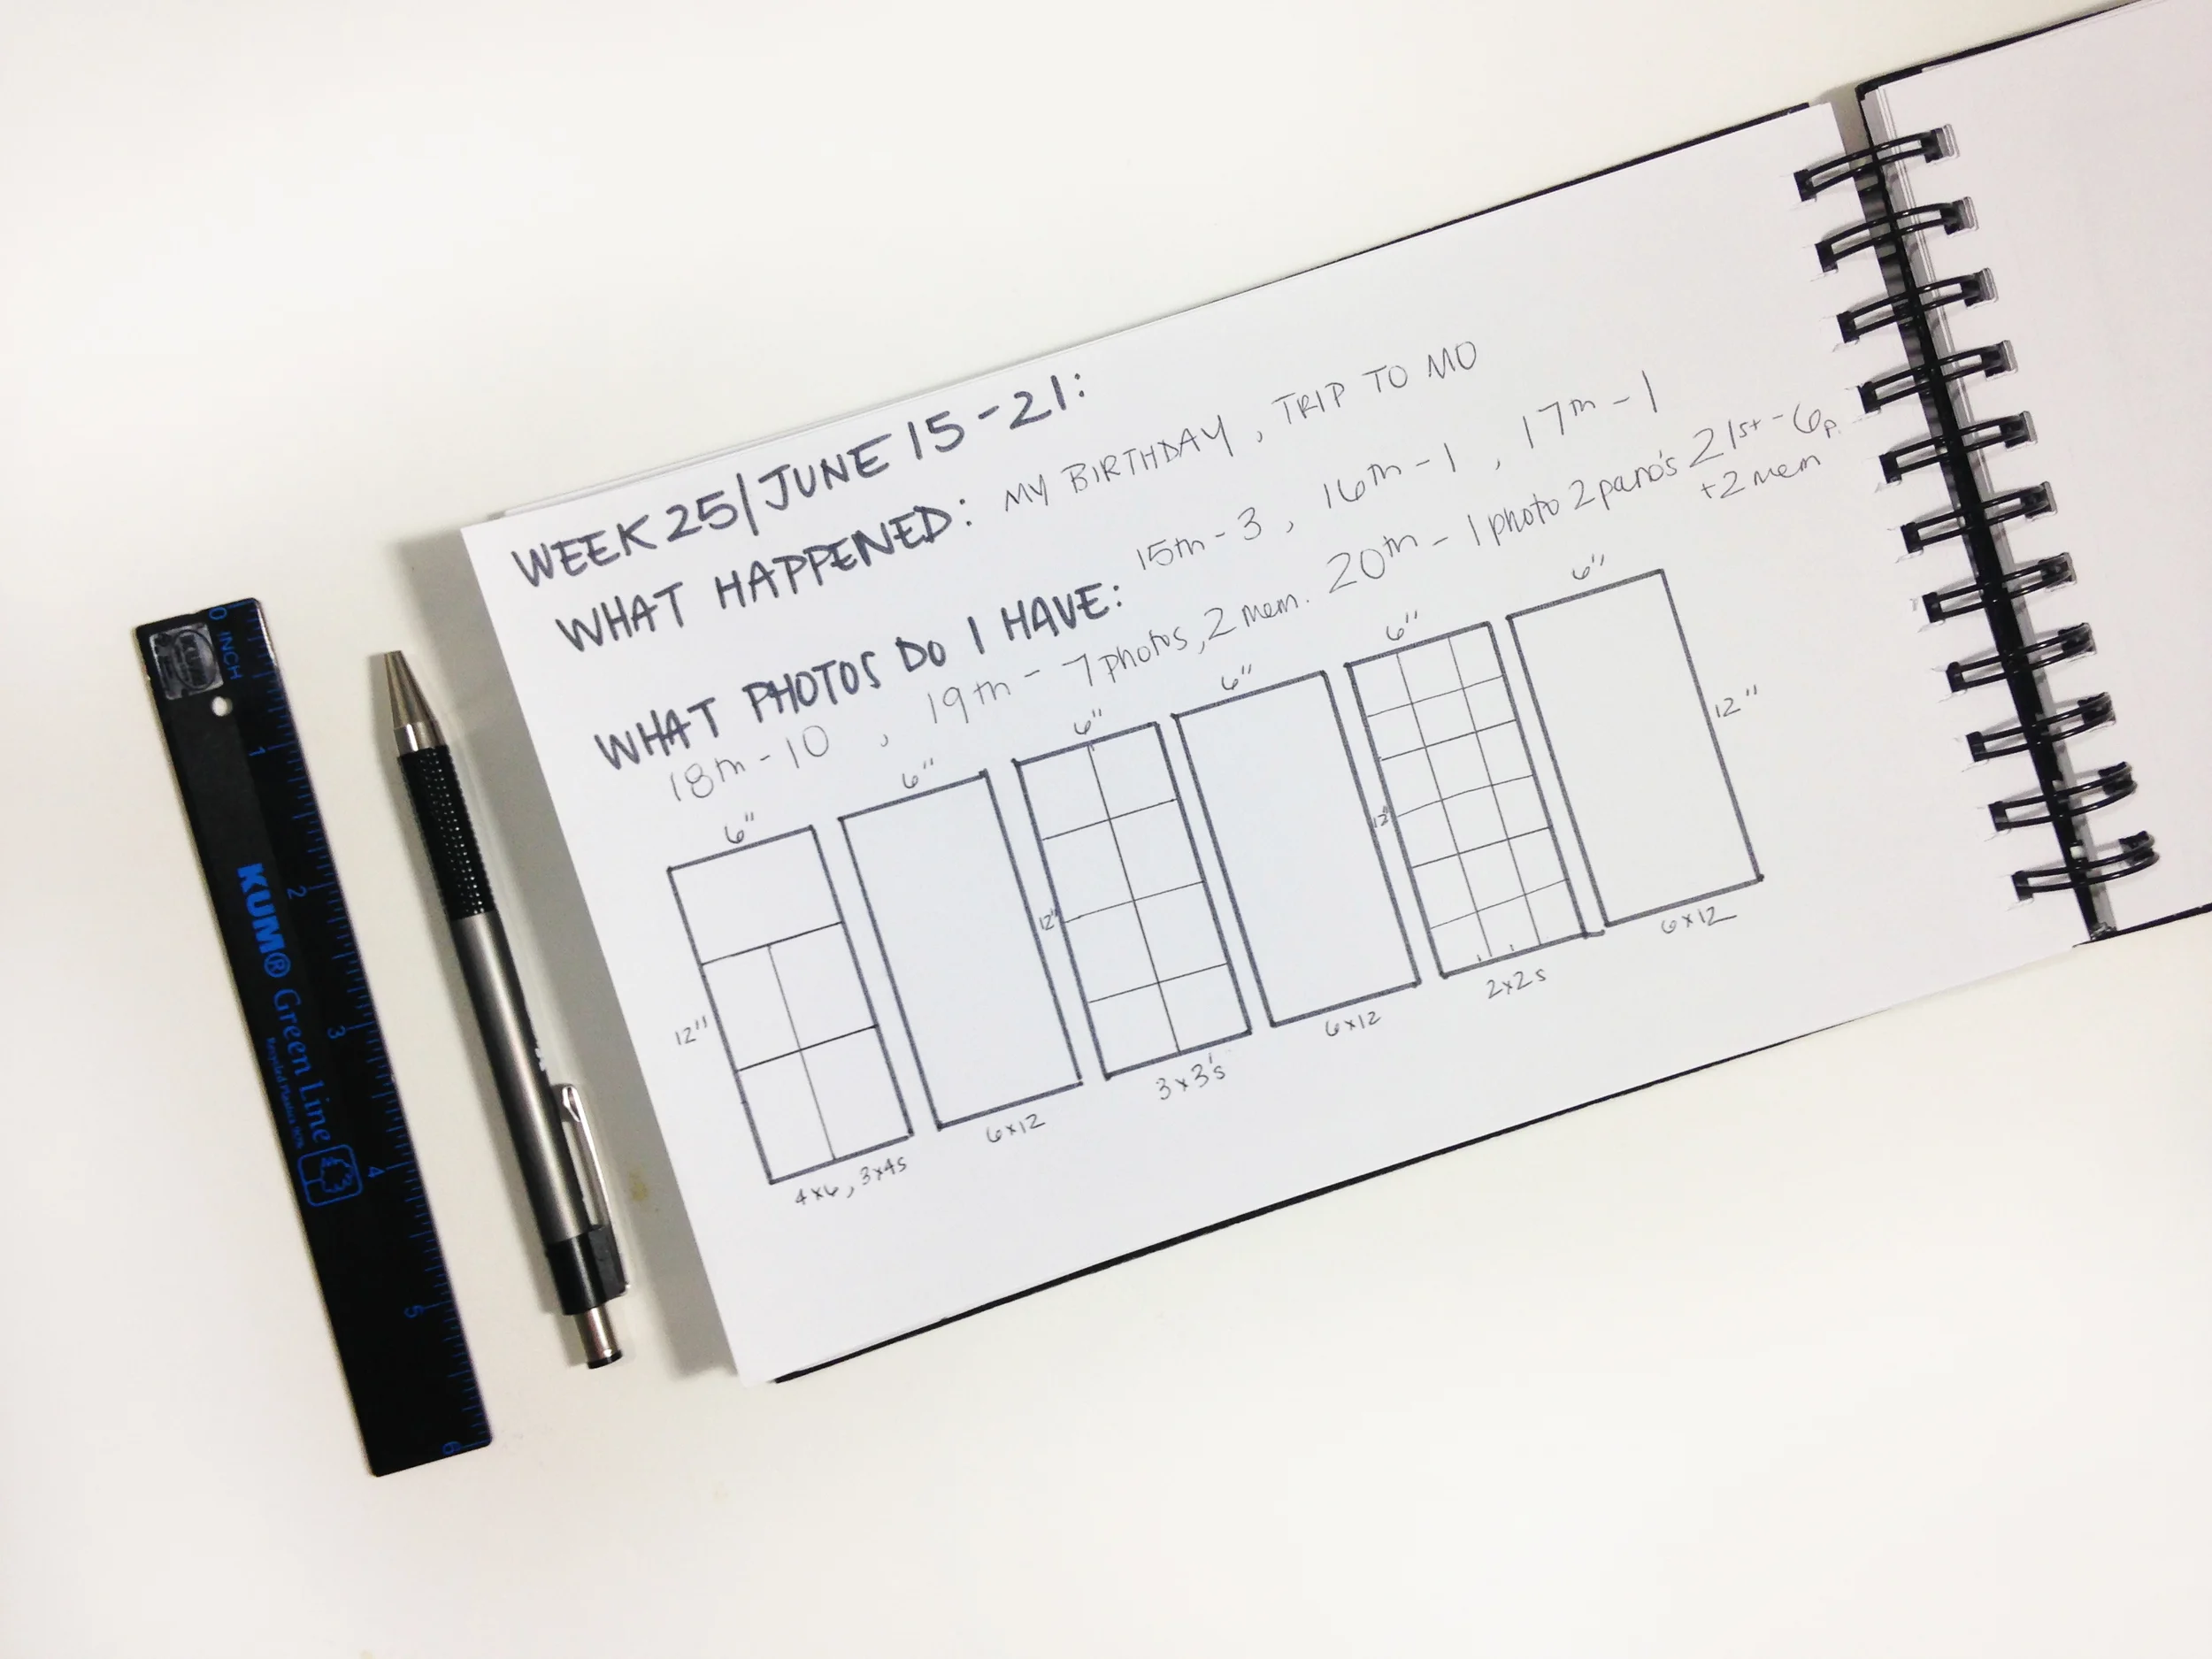 WEEK 25/JUNE 15-21:
WHAT HAPPENED: MY BIRTHDAY, TRIP TO MO
WHAT PHOTOS DO I HAVE: 15th - 3, 16th - 1, 17th - 1
18th - 10, 19th - 7 photos, 2 mem. 20th - 1 photo 2 pano's 21st - 6p.
+2 mem
6" 6" 6" 6" 6" 6"
12" 12" 12" 12"
4x6, 3x4s
6x12
3x3's
6x12
2x2s
6x12
0 INCH
1
2
3
4
5
6
KUM® Green Line